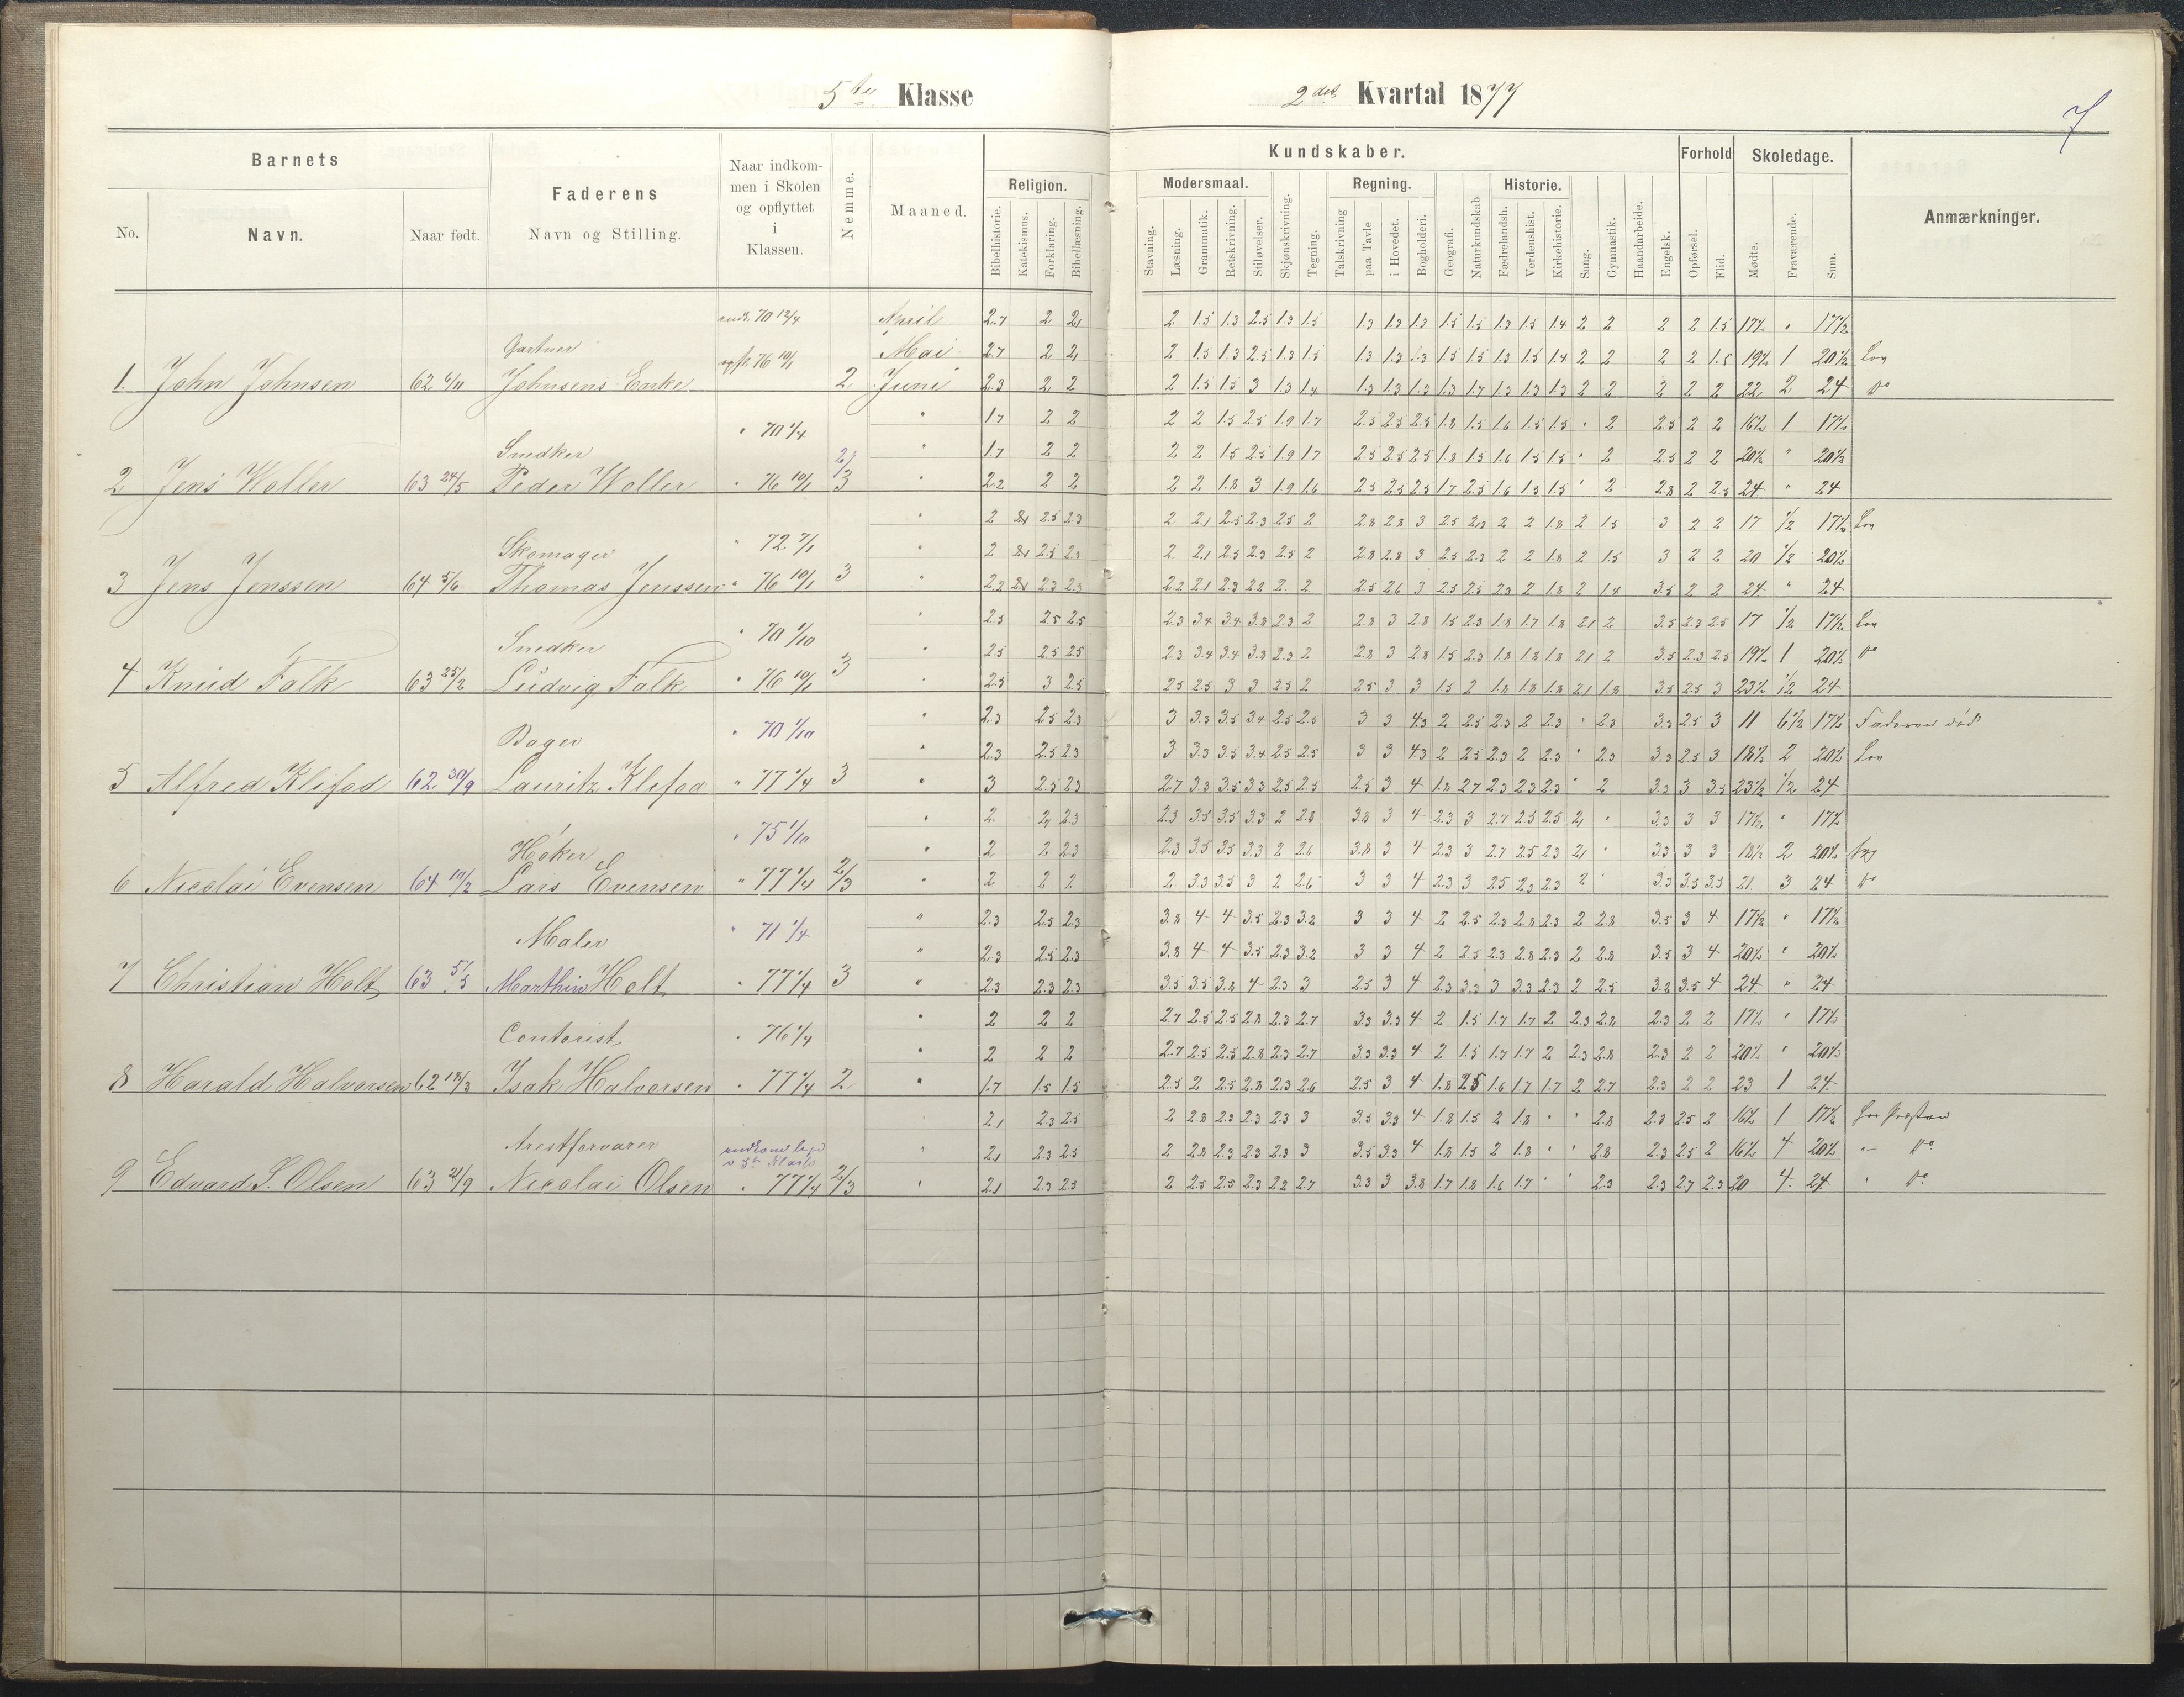 5te Klasse
2det Kvartal 1877
7
Barnets
No.
Navn.
Naar født.
Faderens
Navn og Stilling.
Naar indkom-
men i Skolen
og opflyttet
i
Klassen.
Nemme.
Maaned.
Kundskaber.
Religion.
Bibelhistorie.
Katekismus.
Forklaring.
Bibellæsning.
Modersmaal.
Stavning.
Læsning.
Grammatik.
Retskrivning.
Stiløvelser.
Skjønskrivning.
Tegning.
Regning.
Talskrivning
paa Tavle
i Hovedet.
Bogholderi.
Geografi.
Naturkundskab
Historie.
Fædrelandsh.
Verdenshist.
Kirkehistorie.
Sang.
Gymnastik.
Haandarbeide.
Engelsk.
Forhold
Opførsel.
Flid.
Skoledage.
Mødte.
Fraværende.
Sum.
Anmærkninger.
70 12/4 April 2.7 2 2 2 1.5 1.3 2.5 1.3 1.5 1.3 1.3 1.3 1.5 1.5 1.3 1.5 1.4 2 2 2 2 1.5 17½ " 17½
Gartner 76 10/1 Mai 2.7 2 2 2 1.5 1.3 2.5 1.3 1.5 1.3 1.3 1.3 1.5 1.5 1.3 1.5 1.4 2 2 2 2 1.5 19½ 1 20½
1. John Johnsen 62 6/11 Johnsens Enke 2 Juni 2.3 2 2 2 1.5 1.5 3 1.3 1.4 1.3 1.3 1.3 1.3 1.7 1.3 1.3 1.3 2 2 2 2 2 22 2 24 Do
" 70 1/4 " 1.7 2 2 2 2 1.5 2.5 1.9 1.7 2.5 2.5 2.5 1.8 1.5 1.6 1.5 1.5 " 2 2.5 2 2 16½ 1 17½
Snedker " 1.7 2 2 2 2 1.5 2.5 1.9 1.7 2.5 2.5 2.5 1.8 1.5 1.6 1.5 1.5 " 2 2.5 2 2 20½ " 20½
2 Jens Woller 63 24/5 Peder Woller " 76 10/1 2/3 " 2.2 2 2 2 2 1.8 3 1.9 1.6 2.5 2.5 2.5 1.7 2.5 1.6 1.5 1.5 " 2 2.8 2 2.5 24 " 24
" 72 7/1 " 2 2.5 2.3 2 2.1 2.5 2.3 2.5 2 2.8 2.8 3 2.5 2.3 2 2 1.8 2 1.5 3 2 2 17 ½ 17½
Skomager " 2 2.5 2.3 2 2.1 2.5 2.3 2.5 2 2.8 2.8 3 2.5 2.3 2 2 1.8 2 1.5 3 2 2 20 ½ 20½
3 Jens Jenssen 64 5/6 Thomas Jenssen " 76 10/1 3 " 2.2 2.3 2.3 2.2 2.1 2.3 2.2 2 2 2.5 2.6 3 2.5 2.5 2.3 2 1.8 2 1.4 3.5 2 2 24 " 24
" 70 1/10 " 2.5 2.5 2.5 2.3 3.4 3.4 3.8 2.3 2 2.8 3 2.8 1.5 2.3 1.8 1.7 1.8 2.1 2 3.5 2.3 2.5 17 ½ 17½
Snedker " 2.5 2.5 2.5 2.3 3.4 3.4 3.8 2.3 2 2.8 3 2.8 1.5 2.3 1.8 1.8 1.8 2.1 2 3.5 2.3 2.5 19½ 1 20½ Do
4 Knud Falk 63 25/2 Ludvig Falk " 76 10/1 3 " 2.5 3 2.5 2.5 2.5 3 3 2.5 2 2.5 3 3 1.5 2 1.8 1.8 1.8 2.1 1.8 3.5 2.5 3 23½ ½ 24
" 70 1/10 " 2.3 2.5 2.3 3 3.3 3.5 3.4 2.5 2.5 3 3 4.3 2 2.5 2.3 2 2.3 " 2.3 3.3 2.5 3 11 6½ 17½ Faderen død
Bager " 2.3 2.5 2.3 3 3.3 3.5 3.4 2.5 2.5 3 3 4.3 2 2.5 2.3 2 2.3 " 2.3 3.3 2.5 3 18½ 2 20½
5 Alfred Klefod 62 30/9 Lauritz Klefod " 77 1/4 3 " 3 2.5 2.3 2.7 3.3 3.5 3.3 2.5 2.5 2.5 3 4 1.8 2.7 2.3 2.3 2.3 " 2 3.3 3 3.5 23½ ½ 24
" 75 1/10 " 2 2 2.3 2.3 3.5 3.5 3.3 2 2.8 3.8 3 4 2.3 3 2.7 2.5 2.5 2 " 3.3 3 3 17½ " 17½
Høker " 2 2 2.3 2.3 3.5 3.5 3.3 2 2.6 3.8 3 4 2.3 3 2.7 2.5 2.3 2 " 3.3 3 3 18½ 2 20½
6 Nicolai Evensen 64 10/2 Lars Evensen " 77 1/4 2/3 " 2 2 2 2 3.3 3.5 3 2 2.6 3 3 4 2.3 3 2.5 2.3 2.3 2 " 3.3 3.5 3.5 21 3 24 Do
" 71 1/4 " 2.3 2.5 2.3 3.8 4 4 3.5 2.3 3.2 3 3 4 2 2.5 2.3 2.8 2.3 2 2.8 3.5 3 4 17½ " 17½
Maler " 2.3 2.5 2.3 3.8 4 4 3.5 2.3 3.2 3 3 4 2 2.5 2.3 2.8 2.3 2 2.8 3.5 3 4 20½ " 20½
7 Christian Holt 63 5/5 Marthin Holt " 77 1/4 3 " 2.3 2.3 2.3 3.5 3.5 3.8 4 2.3 3 2.5 3 4 2.3 3.3 3 3.3 2.3 2 2.5 3.2 3.5 4 24 " 24
Contorist " 76 1/4 " 2 2 2 2.7 2.5 2.5 2.8 2.3 2.7 3.3 3.3 4 2 1.5 1.7 1.7 2 2.3 2.8 2.3 2 2 17½ " 17½
" 2 2 2 2.7 2.5 2.5 2.8 2.3 2.7 3.3 3.3 4 2 1.5 1.7 1.7 2 2.3 2.8 2.3 2 2 20½ " 20½
8 Harald Halvorsen 62 18/3 Isak Halvorsen " 77 1/4 2 " 1.7 1.5 1.5 2.5 2 2.5 2.8 2.3 2.6 2.5 3 4 1.8 2.5 1.6 1.7 1.7 2 2.7 2.3 2 2 23 1 24
2.1 2.3 2.5 2 2.8 2.3 2.3 2.3 3 3.5 3.3 4 1.8 1.5 2 1.8 " " 2.8 2.3 2.5 2 16½ 1 17½
Arestforvarer " 2.1 2.3 2.5 2 2.8 2.3 2.3 2.3 3 3.5 3.3 4 1.8 1.5 2 1.8 " " 2.8 2.3 2.5 2 16½ 4 20½ " Do
9 Edvard S. Olsen 63 21/9 Nicolai Olsen " 77 1/4 2/3 " 2.1 2.3 2.5 2 2.5 2.5 2.3 2.2 2.7 3.3 3 3.8 1.7 1.8 1.6 1.7 " " 2.3 2.3 2.7 2.3 20 4 24 " Do